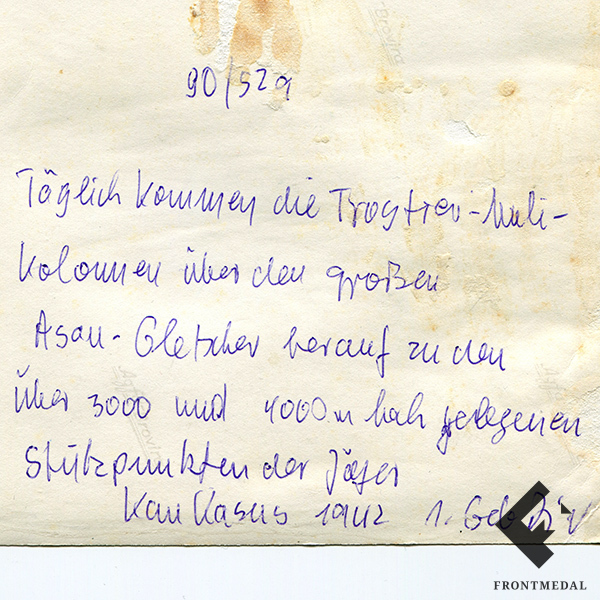 90/529
Täglich kommen die Tragtier-Muli-
Kolonnen über den großen
Asau-Gletscher herauf zu den
über 3000 und 4000 m hoh gelegenen
Stützpunkten der Jäger
Kaukasus 1942 1. Geb.
FRONTMEDAL